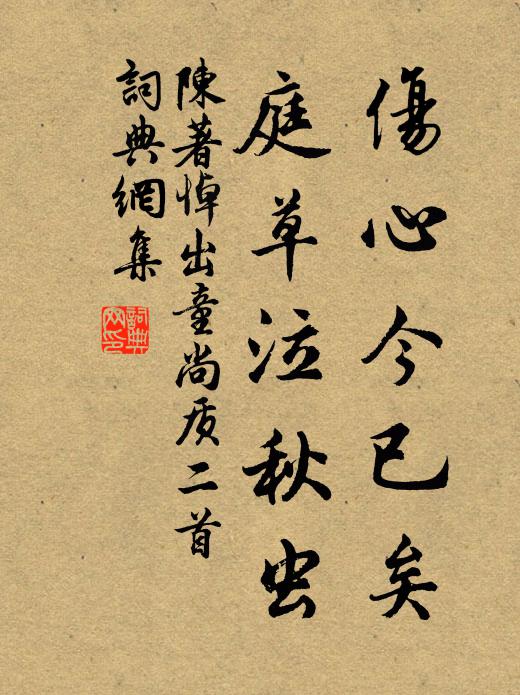 傷心今已矣
庭草泣秋虫
陳著悼出童尚质二首
詞典網集
詞典
网印